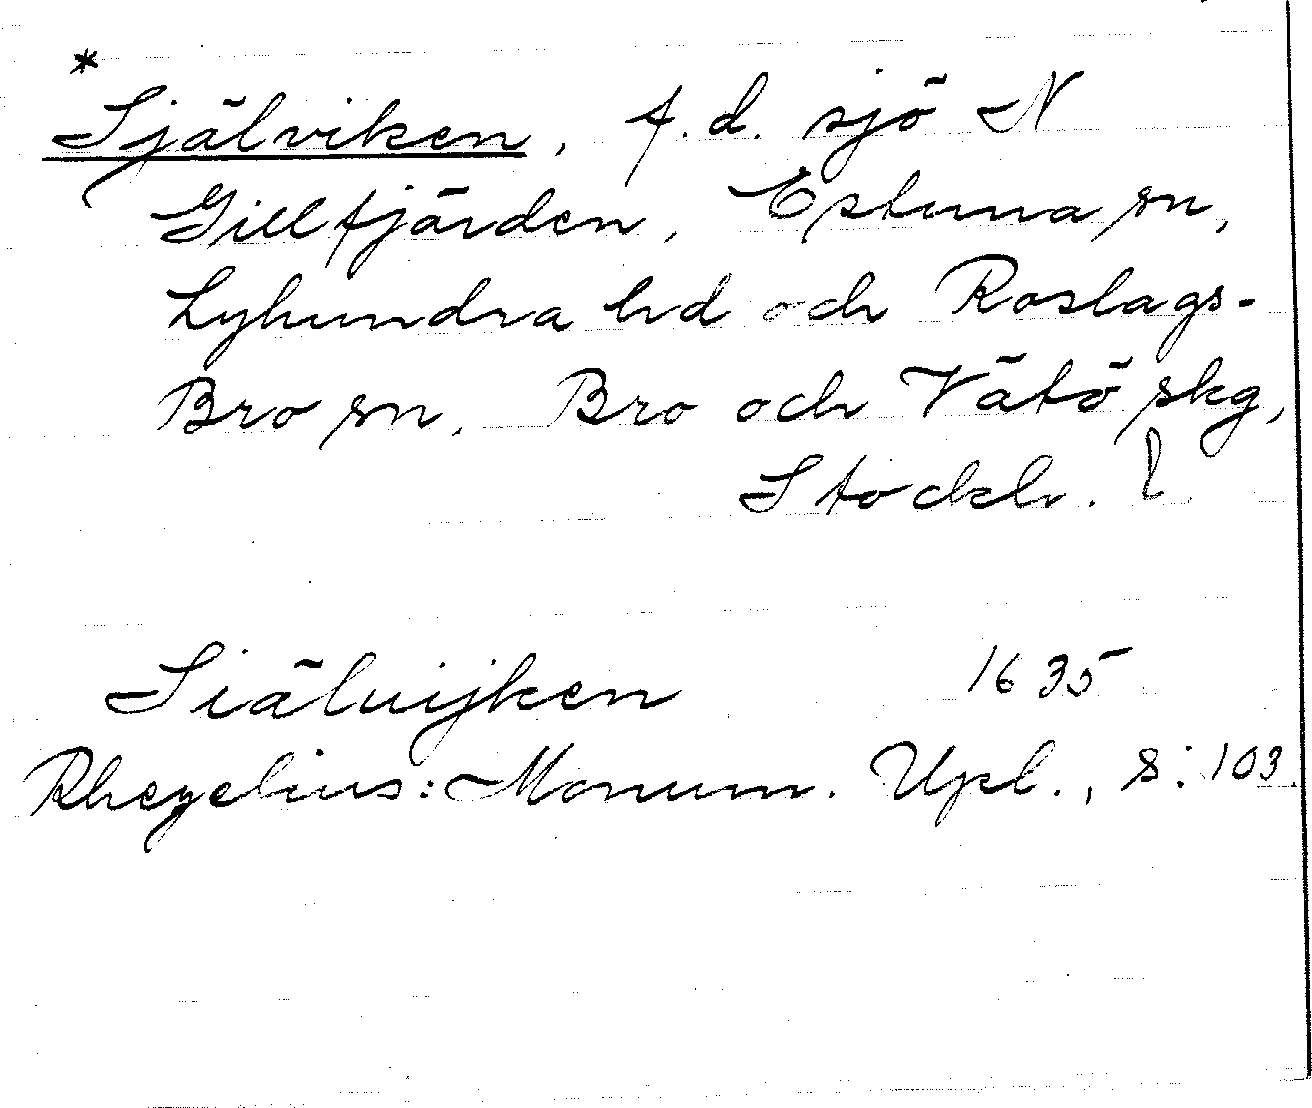 *
Själviken, f.d. sjö N
Gillfjärden, Estuna sn,
Lyhundra hd och Roslags-
Bro sn, Bro och Vätö skg,
Stockh. l
Siäluijken 1635
Rhezelius: Monum. Upl., s: 103.